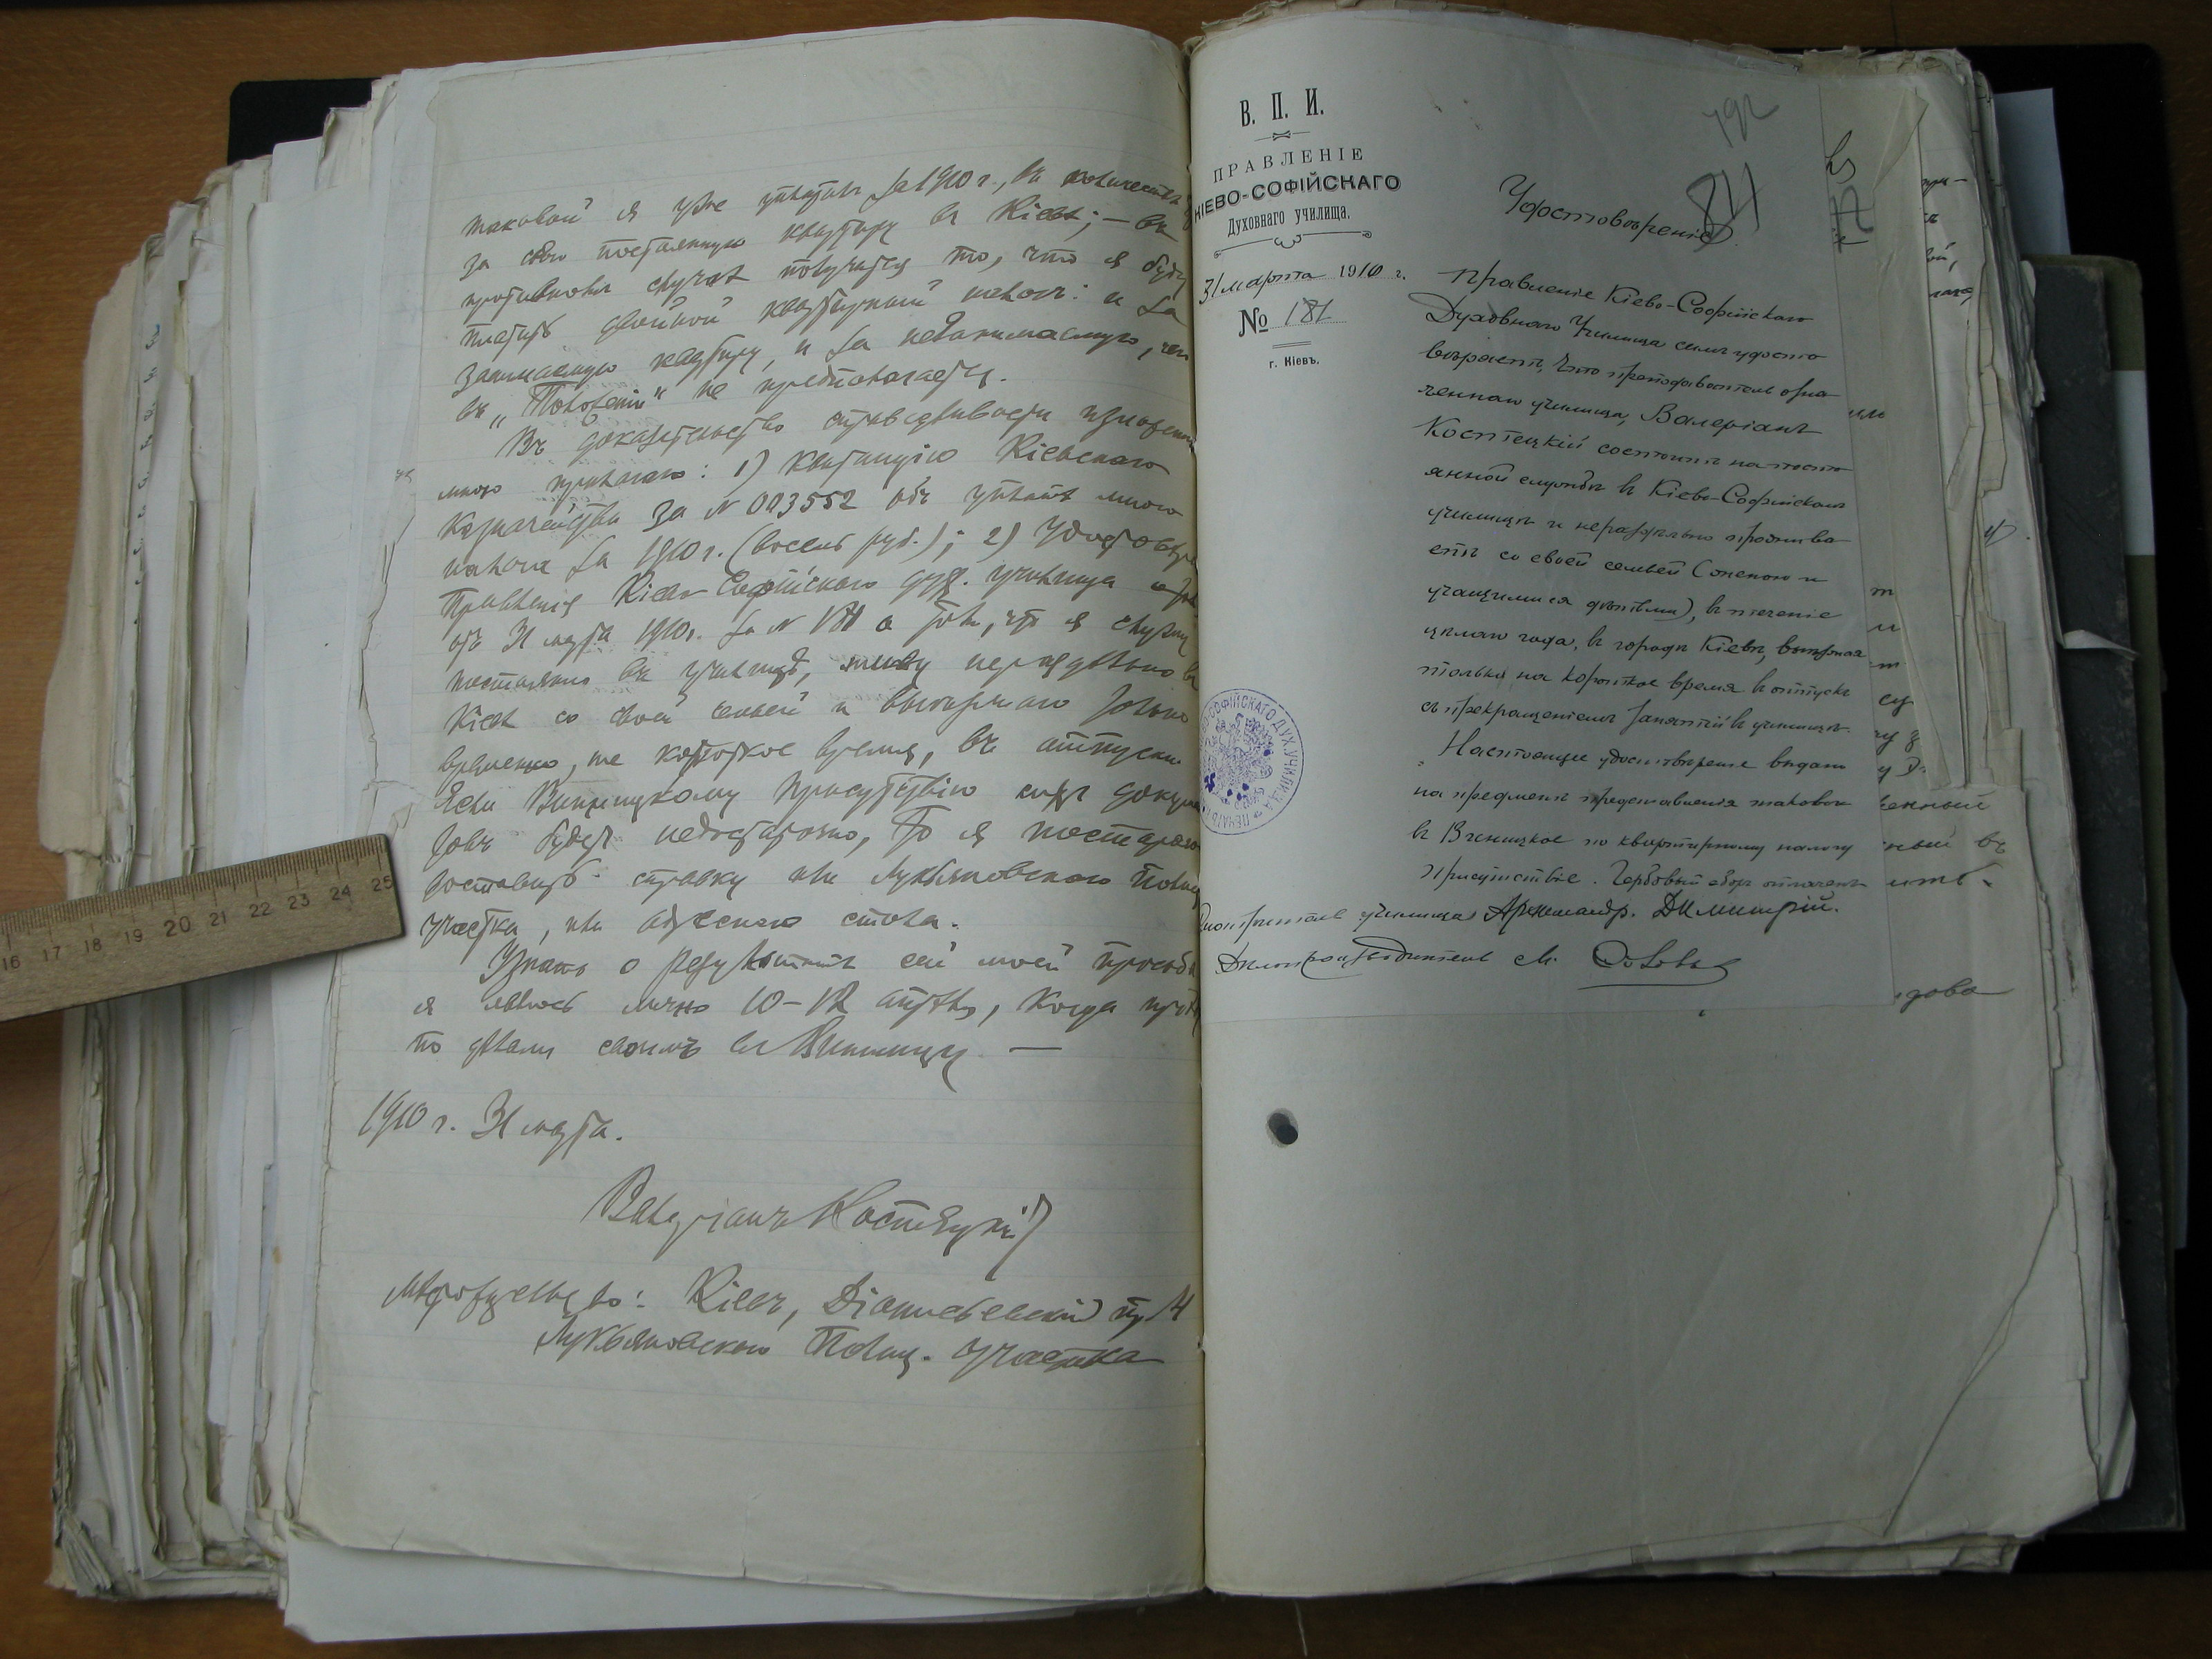 таковой я уже уплатилъ за 1910 г., въ количествѣ
за свою постоянную квартиру въ Кіевѣ; — въ
противномъ случаѣ получится то, что я буду
платить двойной квартирный налогъ: и за
занимаемую квартиру, и за незанимаемую, чего
въ „Положеніи" не предполагается.
Въ доказательство справедливости изложеннаго
мною прилагаю: 1) Квитанцію Кіевскаго
Казначейства за № 003552 объ уплатѣ мною
налога за 1910 г. (восемь руб.); 2) Удостовѣре
Правленія Кіево-Софійскаго дух. училища
отъ 31 марта 1910 г. за № 181 о томъ, что я служу
постоянно въ училищѣ, живу нераздѣльно въ
Кіевѣ со своей семьей и выѣзжаю только
временно, на короткое время, въ отпускъ.
Если Винницкому Присутствію сихъ докумен
товъ будетъ недостаточно, то я постараюсь
доставить справку или Лукьяновскаго Полиц.
участка, или адреснаго стола.
Узнать о результатѣ сей моей просьбы
я явлюсь лично 10–12 апрѣля, когда прі
по дѣламъ своимъ въ Винницу. —
1910 г. 31 марта.
Валеріанъ Костецкій
Мѣстожительство: Кіевъ, Діонисьевскій п.
Лукьяновскаго Полиц. участка
В. П. И.
ПРАВЛЕНІЕ
КІЕВО-СОФІЙСКАГО
Духовнаго училища.
31 марта 1910 г.
№ 181
г. Кіевъ.
84
Удостовѣреніе.
Правленіе Кіево-Софійскаго
Духовнаго Училища симъ удосто
вѣряетъ, что преподаватель озна
ченнаго училища, Валеріанъ
Костецкій состоитъ на посто
янной службѣ въ Кіево-Софійскомъ
училищѣ и нераздѣльно прожива
етъ со своей семьей (женою и
учащимися дѣтьми), въ теченіе
цѣлаго года, въ городѣ Кіевѣ, выѣзжая
только на короткое время въ отпускъ
съ прекращеніемъ занятій въ училищѣ.
Настоящее удостовѣреніе выдано
на предметъ представленія такового
въ Винницкое по квартирному налогу
присутствіе. Гербовый сборъ оплаченъ
Смотритель училища Архимандр. Димитрій.
Дѣлопроизводитель
СОФІЙСКАГО ДУХ. УЧИЛИЩА
ПЕЧАТЬ